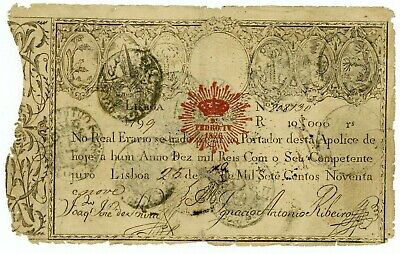 LISBOA Nº
D.
PEDRO IV
1826
R 10$000 rs
No Real Erario se hade ao Portador desta Apolice de
hoje a hum Anno Dez mil Reis Com o Seu Competente
juro Lisboa 25 de de Mil Sete Centos Noventa
e nove
Joaq Joze de Ignacio Antonio Ribeiro